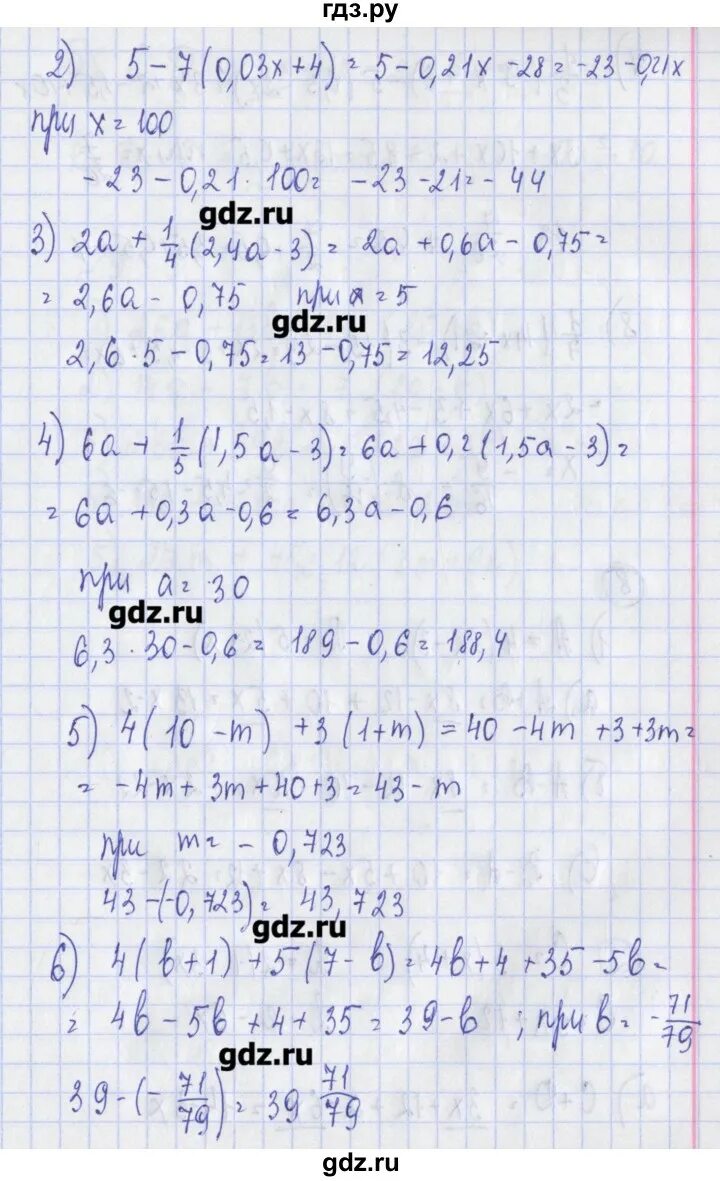 гдз.ру
2) 5 - 7 (0,03x + 4) = 5 - 0,21x - 28 = -23 - 0,21x
при x = 100
-23 - 0,21 · 100 = -23 - 21 = -44
gdz.ru
3) 2a + 1/4 (2,4a - 3) = 2a + 0,6a - 0,75 =
= 2,6a - 0,75 при a = 5
gdz.ru
2,6 · 5 - 0,75 = 13 - 0,75 = 12,25
4) 6a + 1/5 (1,5a - 3) = 6a + 0,2 (1,5a - 3) =
= 6a + 0,3a - 0,6 = 6,3a - 0,6
при a = 30
gdz.ru
6,3 · 30 - 0,6 = 189 - 0,6 = 188,4
5) 4 (10 - m) + 3 (1 + m) = 40 - 4m + 3 + 3m =
= -4m + 3m + 40 + 3 = 43 - m
при m = -0,723
43 - (-0,723) = 43,723
gdz.ru
6) 4 (b + 1) + 5 (7 - b) = 4b + 4 + 35 - 5b =
= 4b - 5b + 4 + 35 = 39 - b ; при b = -71/79
gdz.ru
39 - (-71/79) = 39 71/79
gdz.ru